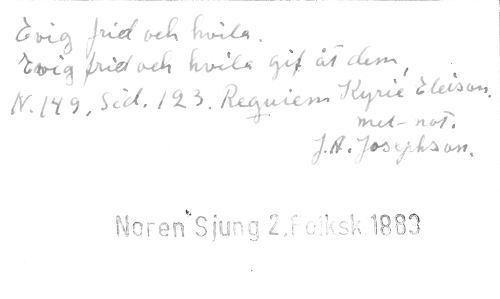 Evig frid och hvila.
Evig frid och hvila gif åt dem,
N. 149, Sid. 123. Requiem Kyrie Eleison.
mel-not.
J. A. Josephson.
Noren "Sjung 2, Folksk. 1883